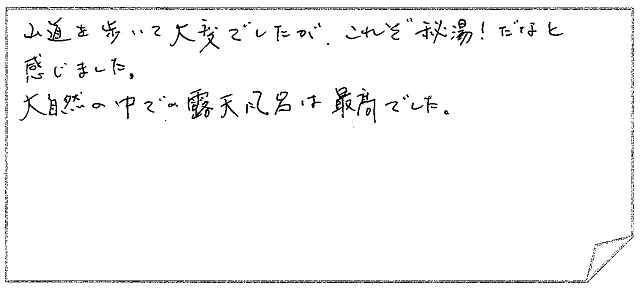 山道を歩いて大変でしたが、これぞ秘湯!だなと
感じました。
大自然の中での露天風呂は最高でした。